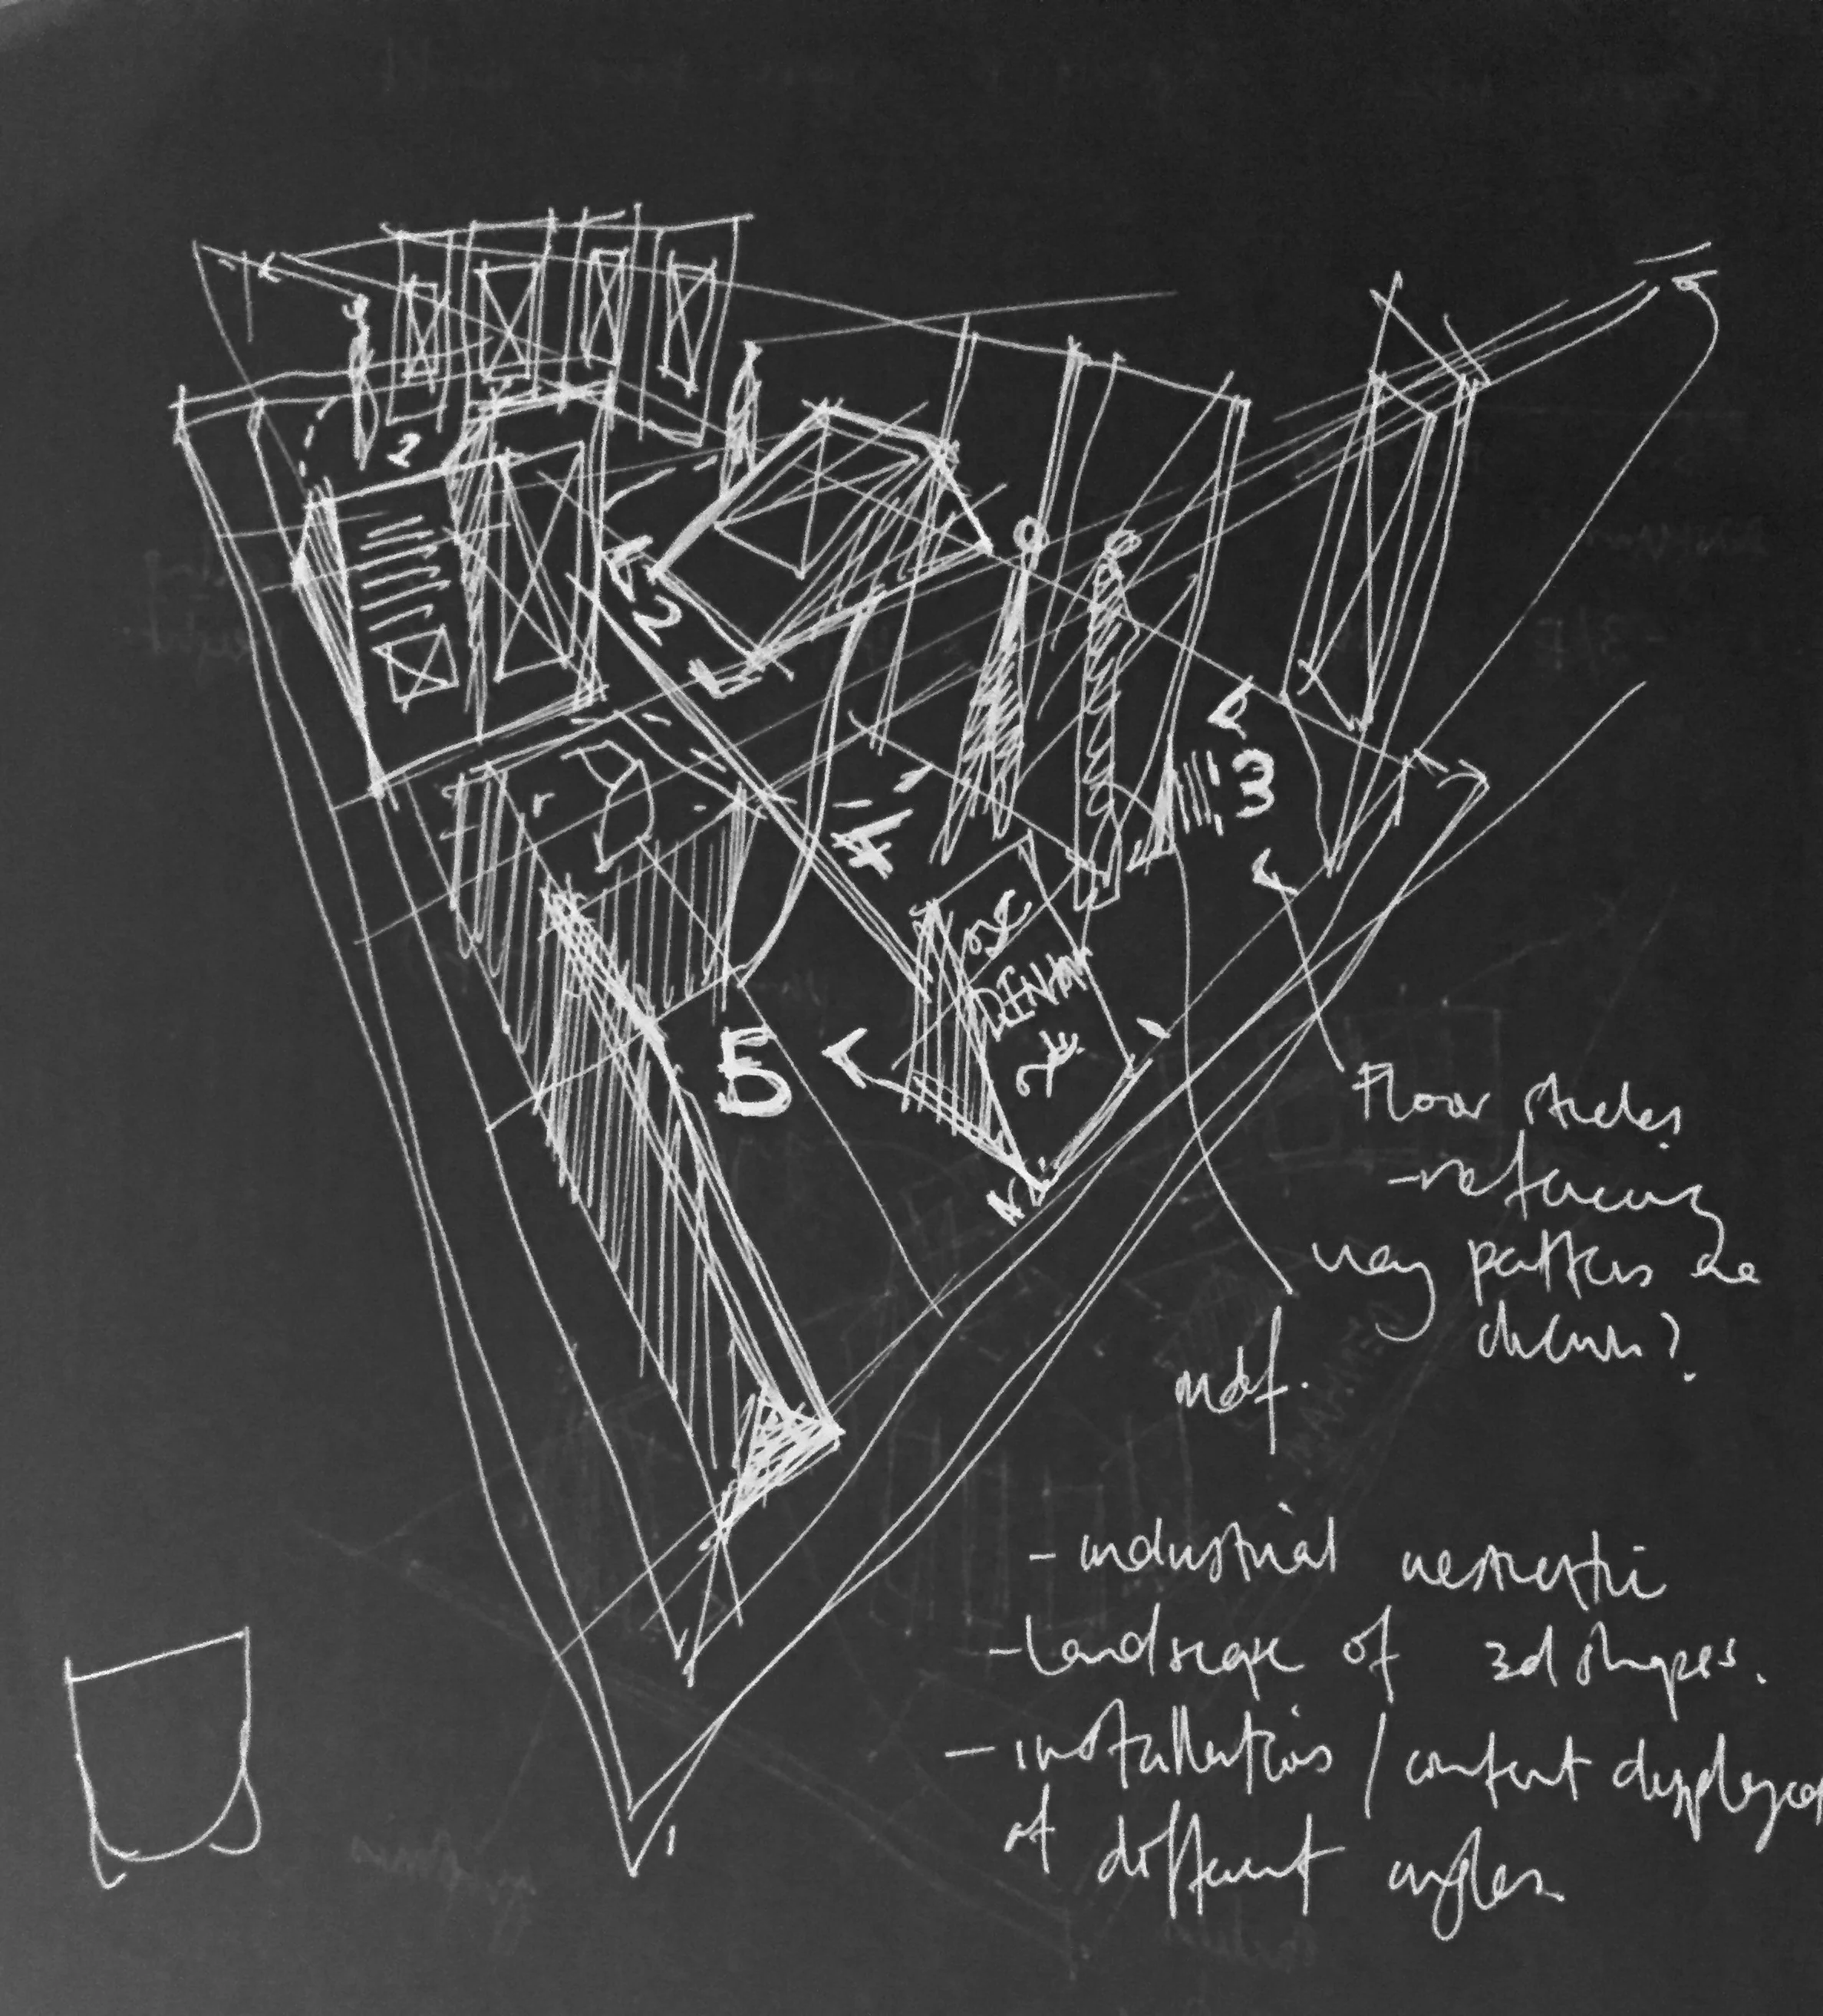 2
2
3
4
5
DENIM
Floor studies
- refencing
way patterns are
drawn?
mdf.
- industrial aesthetic
- landscape of 3d shapes.
- installations / content displayed
at different angles